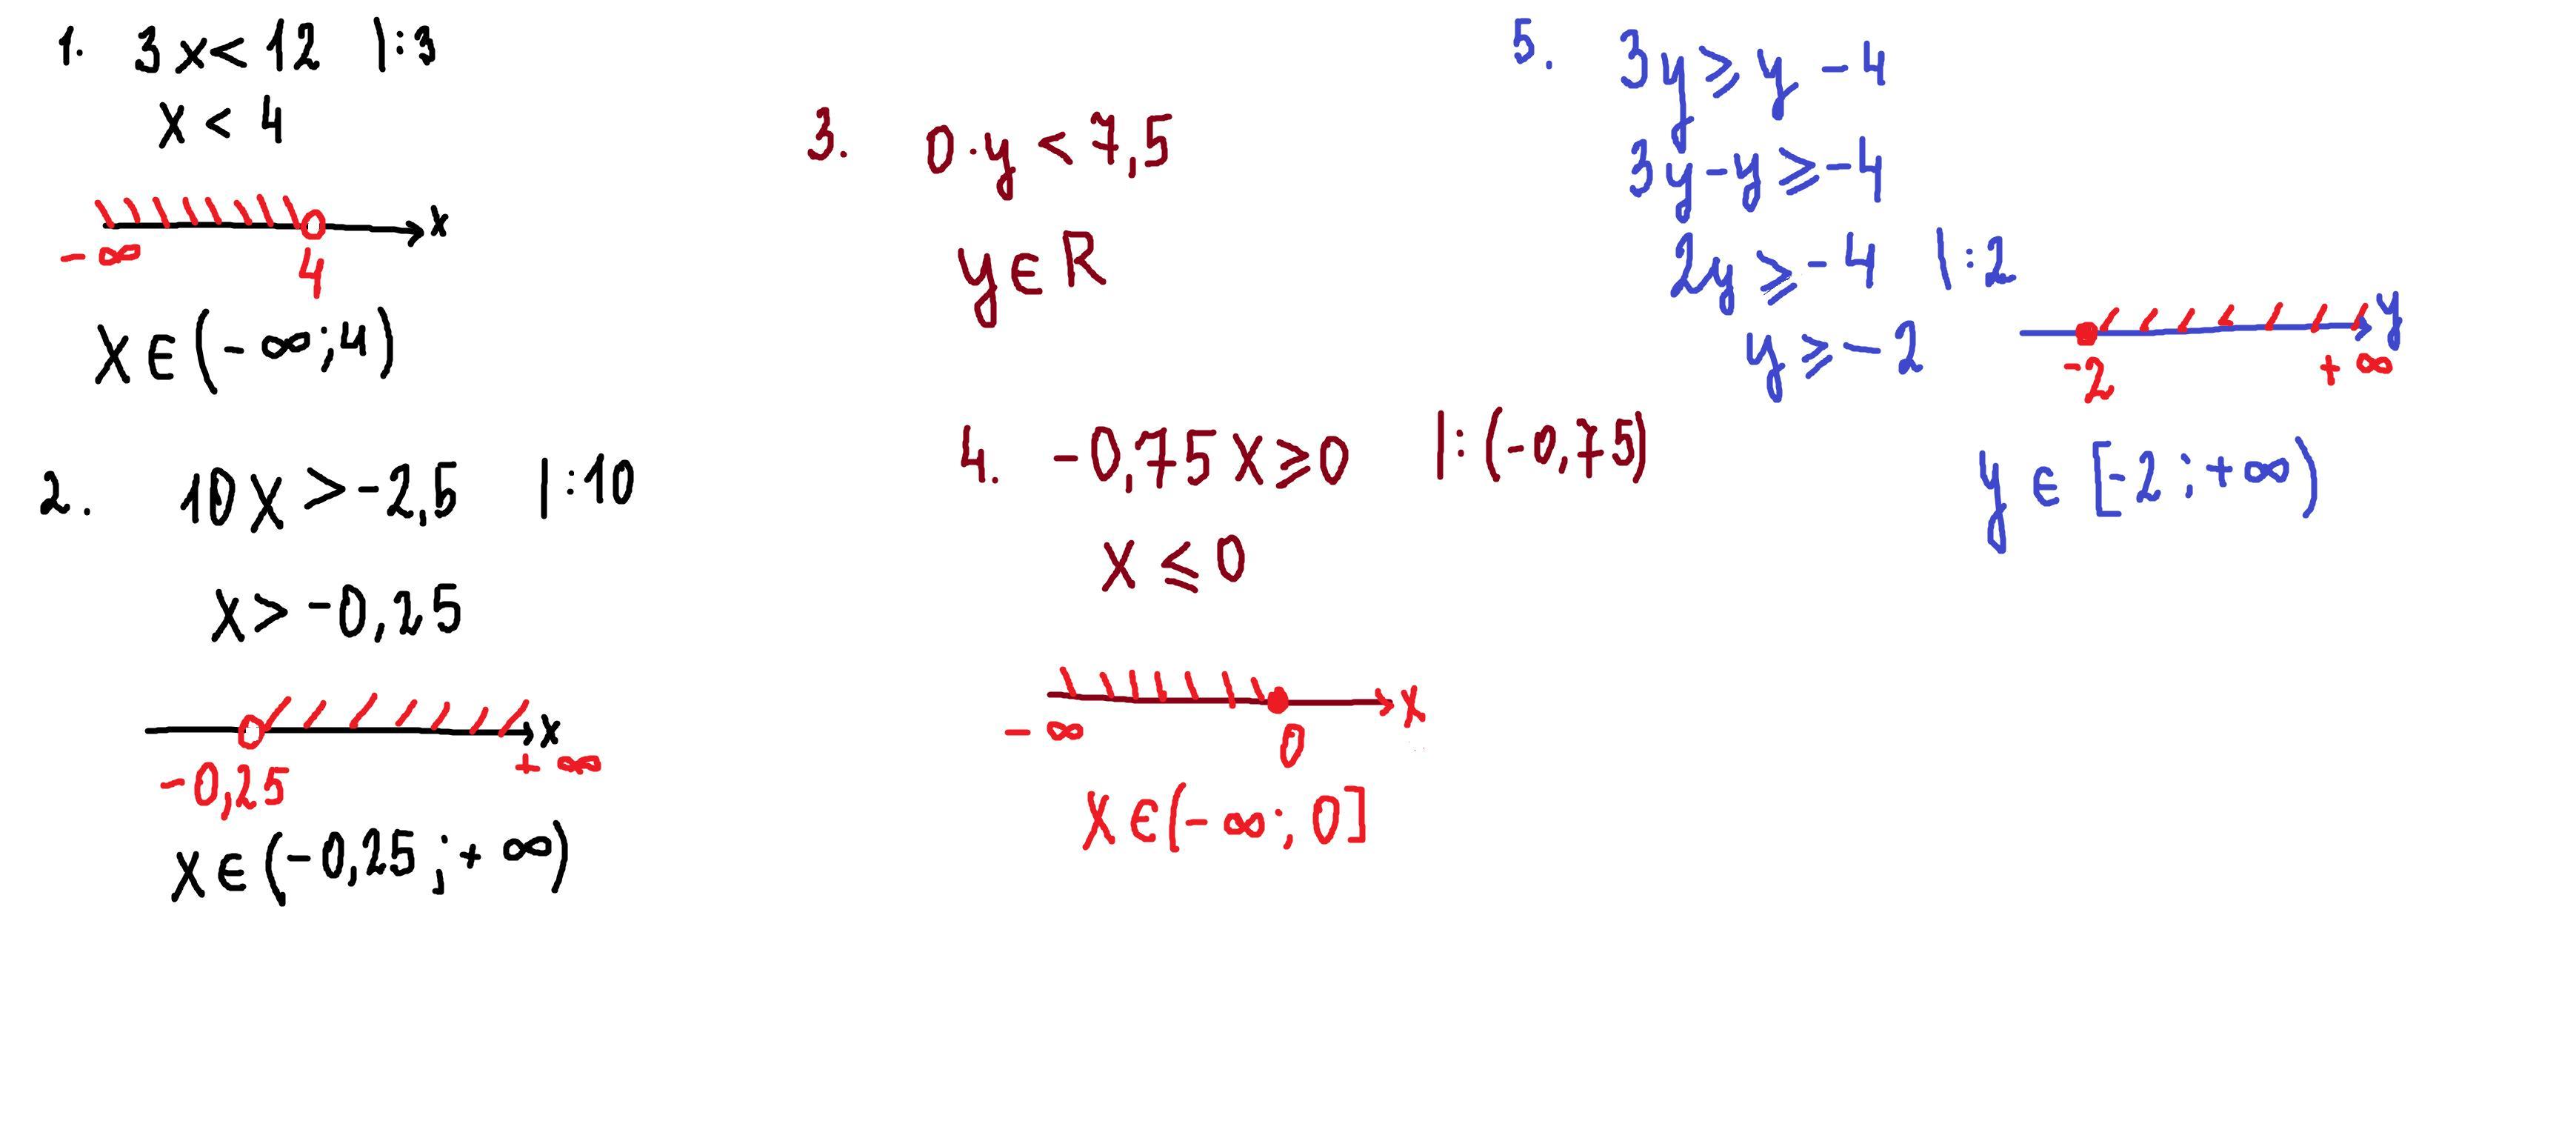 1. 3x < 12 |:3
x < 4
x
- ∞ 4
x ∈ (- ∞; 4)
2. 10x > -2,5 |:10
x > -0,25
x
-0,25 + ∞
x ∈ (-0,25 ; + ∞)
3. 0·y < 7,5
y ∈ R
4. -0,75x ⩾ 0 |:(-0,75)
x ⩽ 0
x
- ∞ 0
x ∈ (- ∞; 0]
5. 3y ⩾ y - 4
3y - y ⩾ -4
2y ⩾ -4 |:2
y ⩾ -2
y
-2 + ∞
y ∈ [-2 ; +∞)